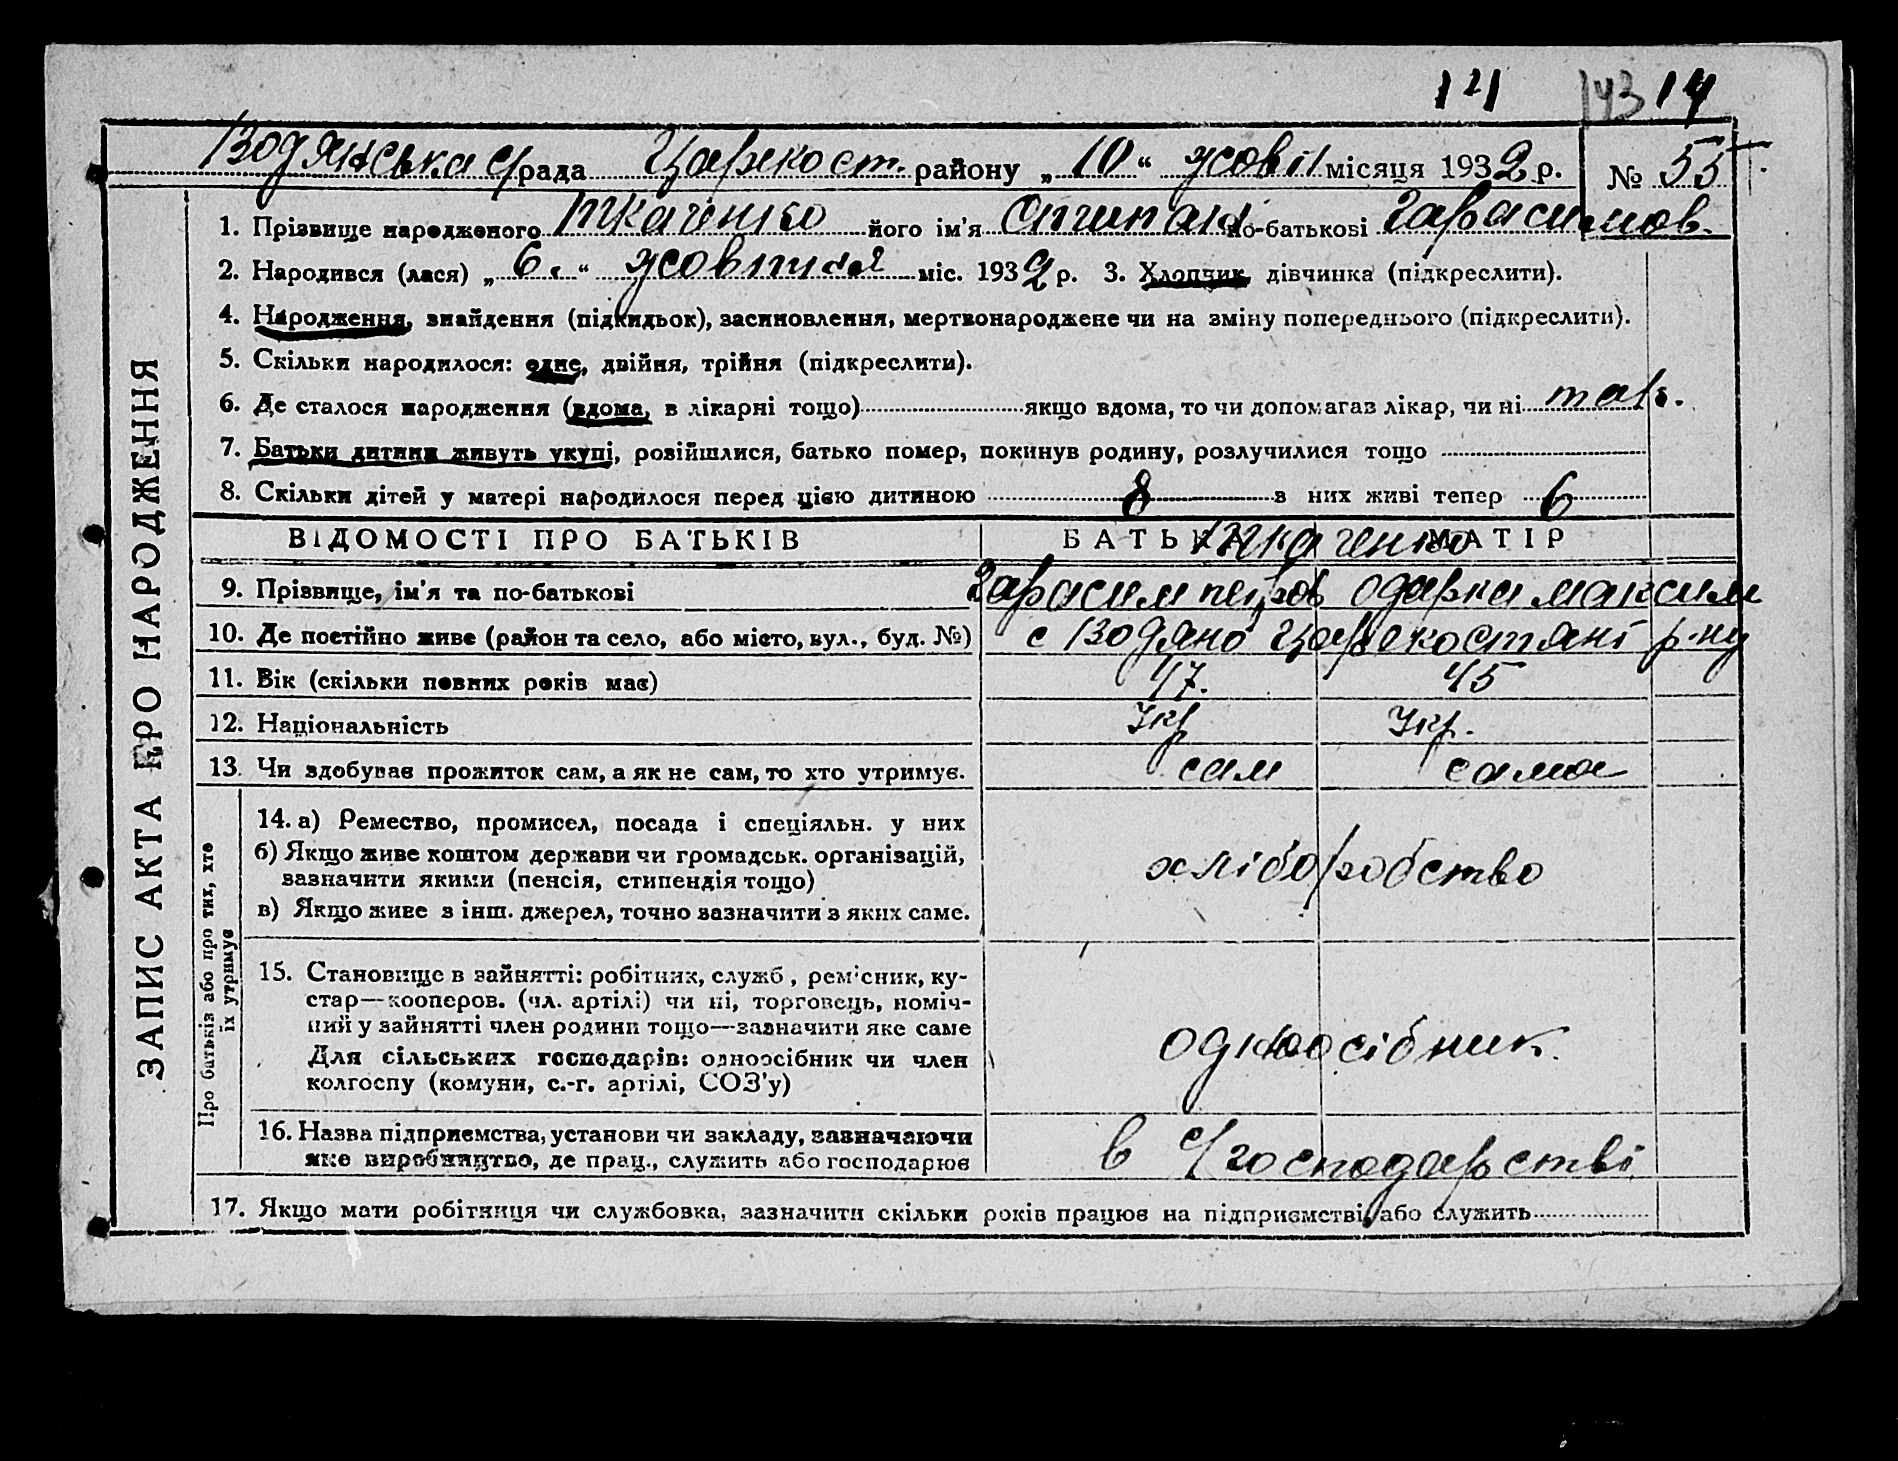 14 143 14
Водянська с/рада Царекост. району „ 10 “ жовт місяця 1932 р. № 55
1. Прізвище народженого Ткаченко його ім'я Степан по-батькові Гарасимов.
2. Народився (лася) „ 6. “ жовтня міс. 1932 р. 3. Хлопчик, дівчинка (підкреслити).
4. Народження, знайдення (підкидьок), засиновлення, мертвонароджене чи на зміну попереднього (підкреслити).
5. Скільки народилося: одне, двійня, трійня (підкреслити).
6. Де сталося народження (вдома, в лікарні тощо) якщо вдома, то чи допомагав лікар, чи ні так.
7. Батьки дитини живуть укупі, розійшлися, батько помер, покинув родину, розлучилися тощо
8. Скільки дітей у матері народилося перед цією дитиною 8 з них живі тепер 6
ВІДОМОСТІ ПРО БАТЬКІВ БАТЬКО МАТІР
Ткаченко
9. Прізвище, ім'я та по-батькові Гарасим петров Одарка максим
10. Де постійно живе (район та село, або місто, вул., буд. №) с Водяно Царекостянт р-ну
11. Вік (скільки повних років має) 47. 45
12. Національність Укр Укр.
13. Чи здобуває прожиток сам, а як не сам, то хто утримує. сам сама
14. а) Ремество, промисел, посада і спеціяльн. у них
б) Якщо живе коштом держави чи громадськ. організацій,
зазначити якими (пенсія, стипендія тощо)
в) Якщо живе з інш. джерел, точно зазначити з яких саме.
хліборобство
15. Становище в зайнятті: робітник, служб., рем'сник, ку-
стар—кооперов. (чл. артілі) чи ні, торговець, поміч-
ний у зайнятті член родини тощо—зазначити яке саме
Для сільських господарів: одноосібник чи член
колгоспу (комуни, с.-г. артілі, СОЗ'у)
одноосібник.
16. Назва підприємства, установи чи закладу, зазначаючи
яке виробництво, де прац., служить або господарює
в с/господарстві
17. Якщо мати робітниця чи службовка, зазначити скільки років працює на підприємстві, або служить
ЗАПИС АКТА ПРО НАРОДЖЕННЯ
Про батьків або про тих, хто
їх утримує